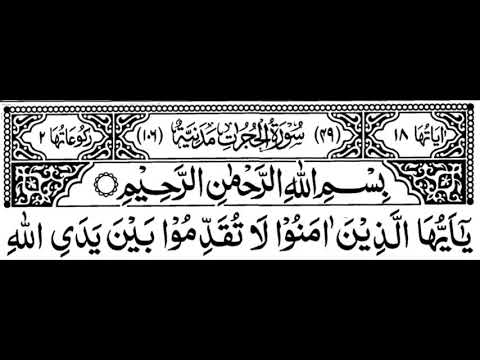 اٰيَاتُهَا ١٨ (٤٩) سُوْرَةُ الْحُجُرٰتِ مَدَنِيَّةٌ (١٠٦) رُكُوْعَاتُهَا ٢
بِسْمِ اللّٰهِ الرَّحْمٰنِ الرَّحِيْمِ
يٰۤاَيُّهَا الَّذِيْنَ اٰمَنُوْا لَا تُقَدِّمُوْا بَيْنَ يَدَيِ اللّٰهِ